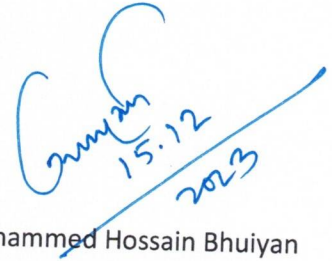 15.12
2023
hammed Hossain Bhuiyan